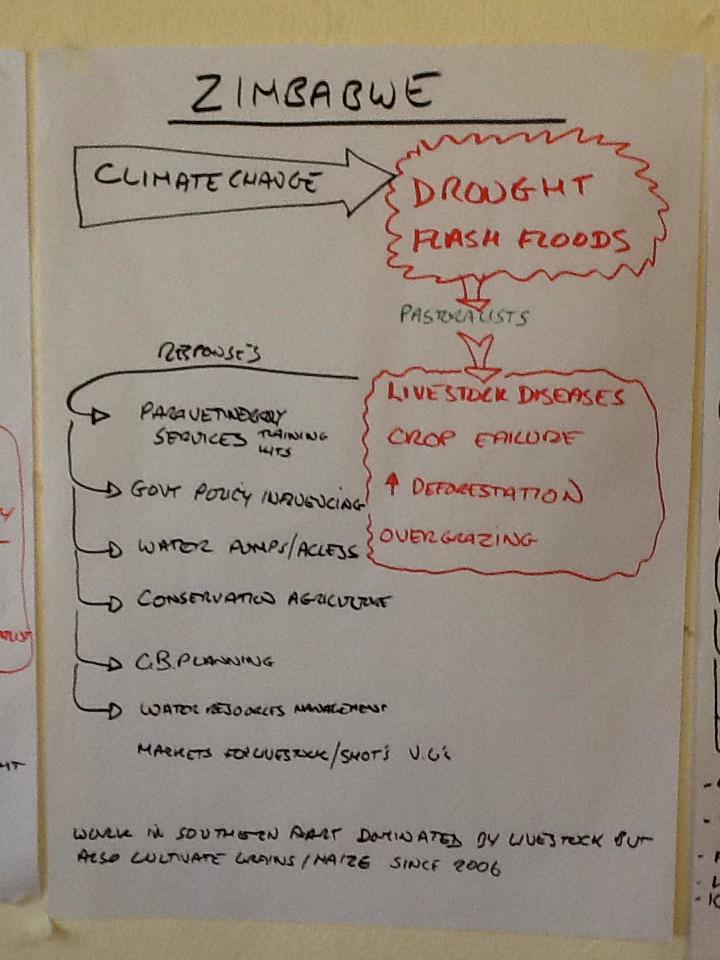 ZIMBABWE
CLIMATE CHANGE
DROUGHT
FLASH FLOODS
PASTORALISTS
RESPONSE'S
LIVESTOCK DISEASES
CROP FAILURE
↑ DEFORESTATION
OVERGRAZING
PARAVETINERARY
SERVICES TRAINING
KITS
GOVT POLICY INFLUENCING
WATER PUMPS/ACCESS
CONSERVATION AGRICULTURE
C.B. PLANNING
WATER RESOURCES MANAGEMENT
MARKETS FOR LIVESTOCK/SHOT'S V.C's
WORK IN SOUTHERN PART DOMINATED BY LIVESTOCK BUT
ALSO CULTIVATE GRAINS/MAIZE SINCE 2006